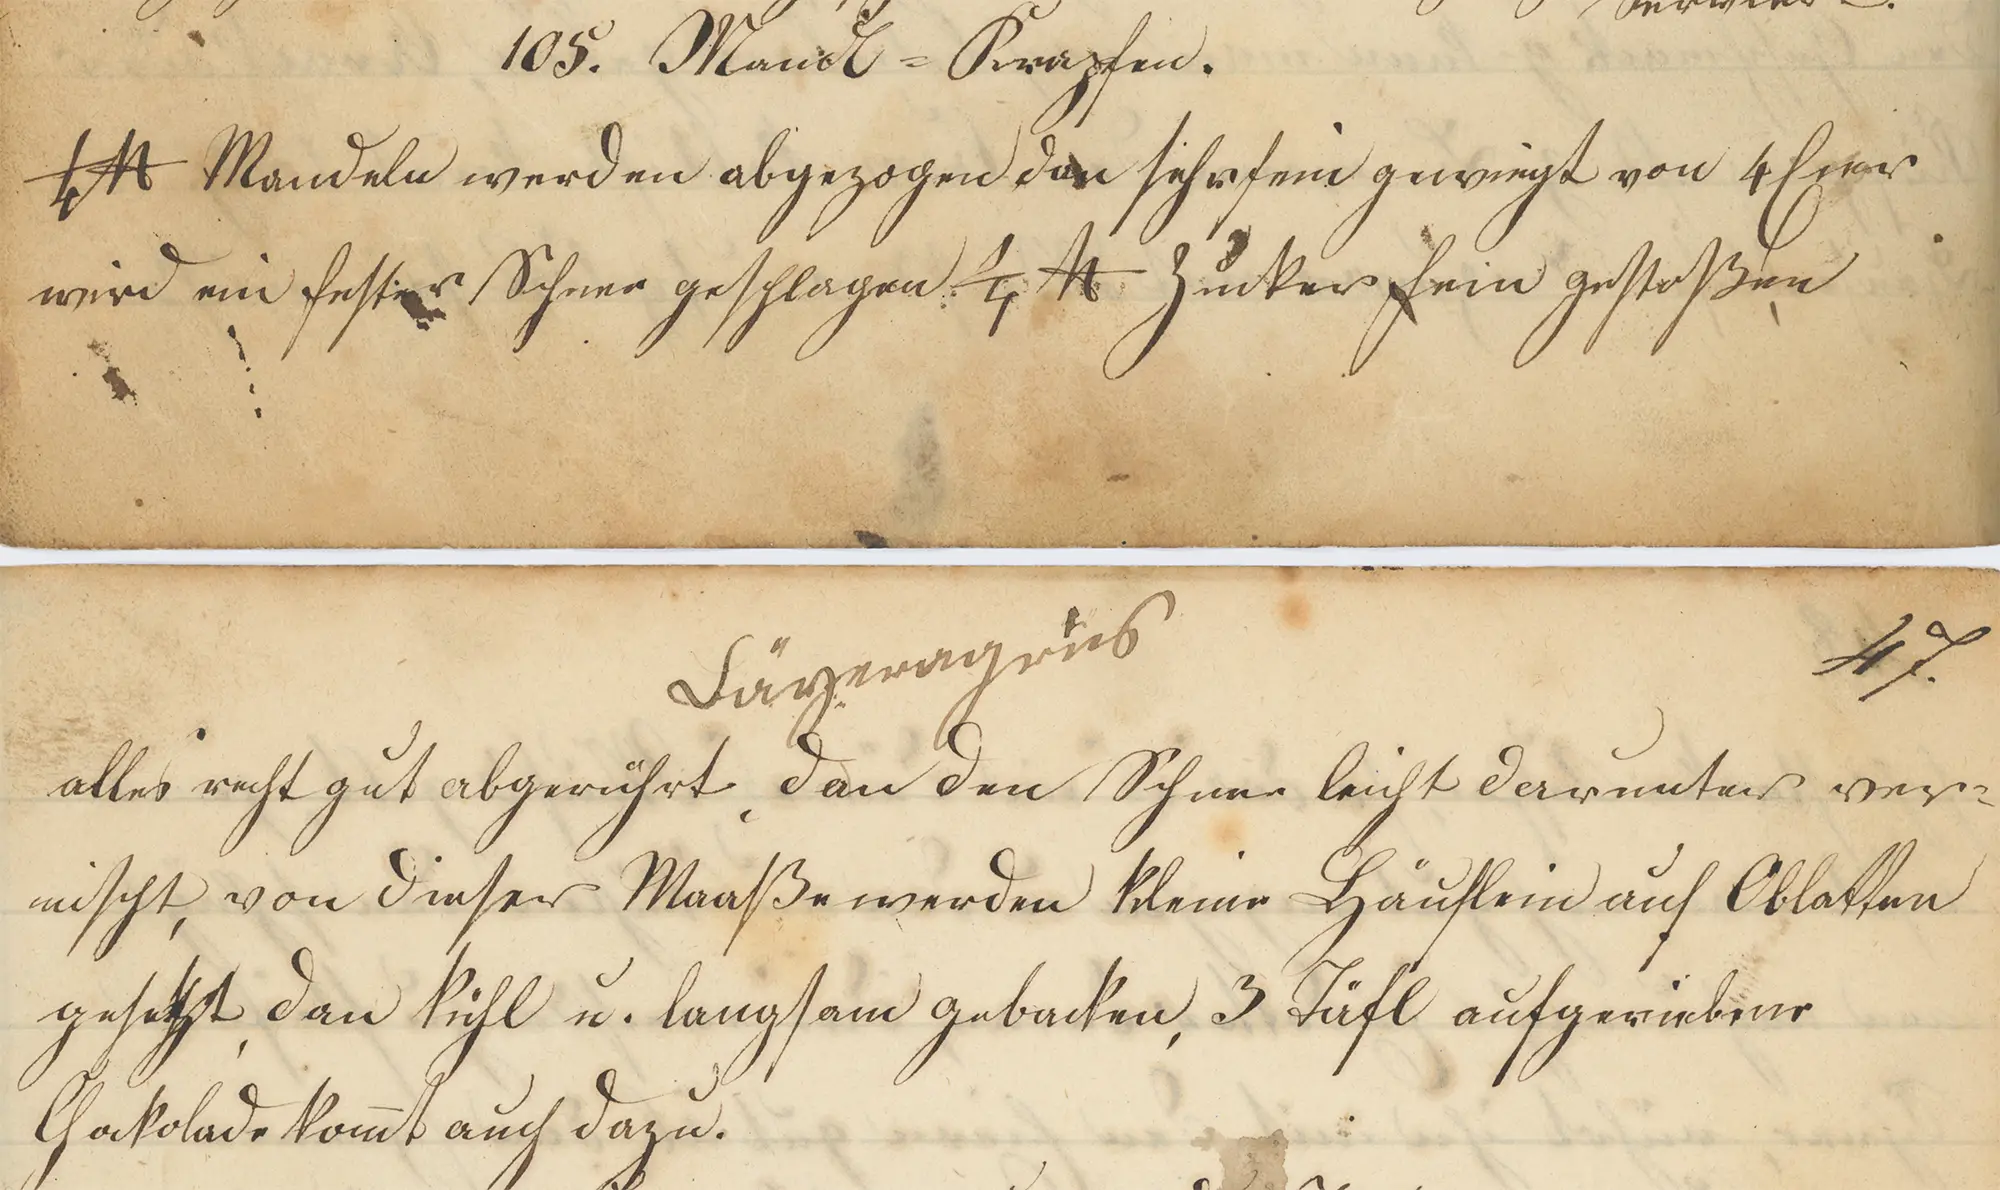 servier
105. Mandl = Krapfen.
¼ ℔ Mandeln werden abgezogen dan sehr fein gewiegt von 4 Eier
wird ein fester Schnee geschlagen ¼ ℔ Zucker fein gestoßen
47.
alles recht gut abgerührt, dan den Schnee leicht darunter ver=
mischt, von dieser Maaße werden kleine Häuflein auf Oblatten
gesetzt, dan kühl u. langsam gebacken, 3 Täfl aufgeriebene
Chokolade kom̅t auch dazu.